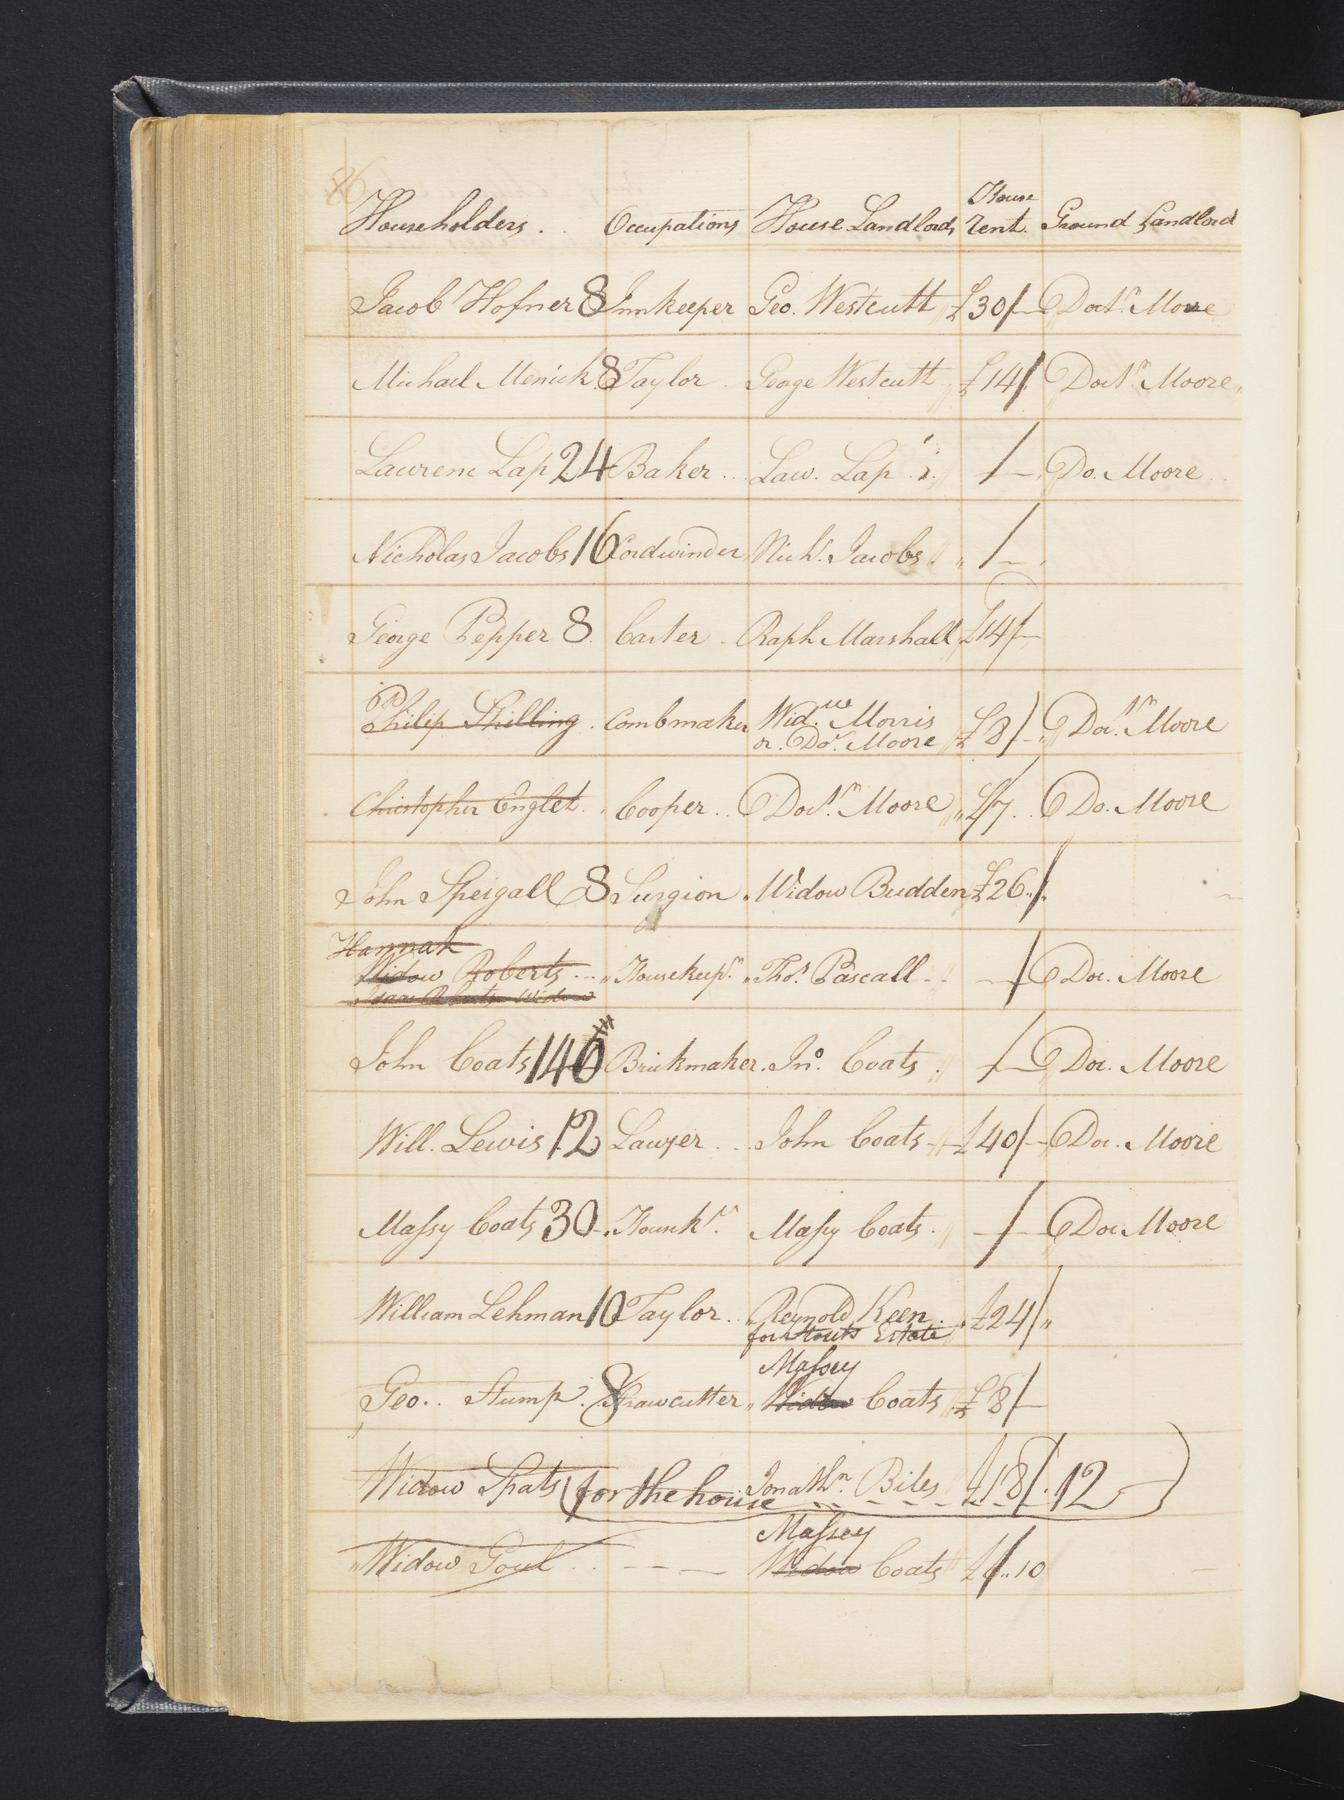 86
Householders. Occupations House Landlords House rent. Ground Landlord
Jacob Hofner 8 Innkeeper Geo. Westcutt £30/— Doctr. Moore
Michael Menick 8 Taylor George Westcutt £14/. Doctr. Moore
Laurenc Lap 24 Baker .. Law. Lap /— Do. Moore
Nicholas Jacobs 16 Cordwinder Nichs. Jacobs /—
George Pepper 8 Carter Raph Marshall £14/—
Philip Shilling . Combmaker Widue. Morris £8/ Doctr. Moore
or Dor. Moore
Christopher Englet. Cooper .. Doctr. Moore £7 .. Do. Moore
John Speigall 8 Surgion Widow Budden £26../.
Hannah
Widow Roberts ... Housekeepr. Thos. Pascall .. —/ Doc. Moore
Widow
John Coats 146 Brickmaker. Jno. Coats . —/— Doc. Moore
Will. Lewis 12 Lawyer ... John Coats £40/— Doc. Moore
Massy Coats 30 . Housekr. Massy Coats . —/— Doc Moore
William Lehman 10 Taylor .. Reynold Keen . £24/
for Stouts Estate
Massey
Geo.. Stump . 8 Strawcutter Widow Coats £8/—
Widow Spats (for the house Jonathn. Biles £18/. 12 )
Massey
Widow Goul .. — — — Widow Coats £/..10